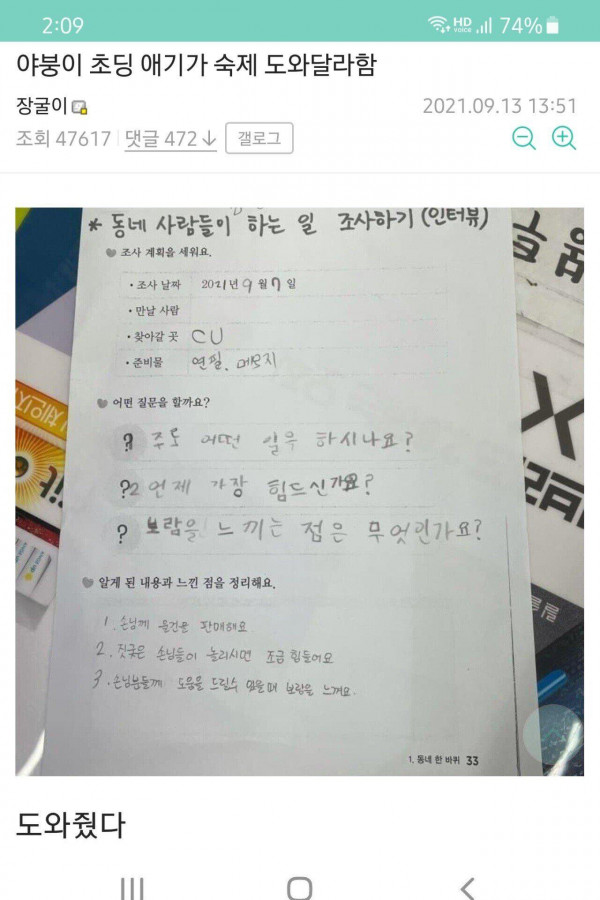 2:09 HD voice 74%
야붕이 초딩 애기가 숙제 도와달라함
장굴이 2021.09.13 13:51
조회 47617 댓글 472 갤로그
* 동네 사람들이 하는 일 조사하기 (인터뷰)
조사 계획을 세워요.
• 조사 날짜 2021년 9월 7일
• 만날 사람
• 찾아갈 곳 CU
• 준비물 연필, 메모지
어떤 질문을 할까요?
? 주로 어떤 일을 하시나요?
?2 언제 가장 힘드신가요?
? 보람을 느끼는 점은 무엇인가요?
알게 된 내용과 느낀 점을 정리해요.
1. 손님께 물건을 판매해요
2. 짓궂은 손님들이 놀리시면 조금 힘들어요
3. 손님분들께 도움을 드릴수 있을때 보람을 느껴요.
1. 동네 한 바퀴 33
도와줬다